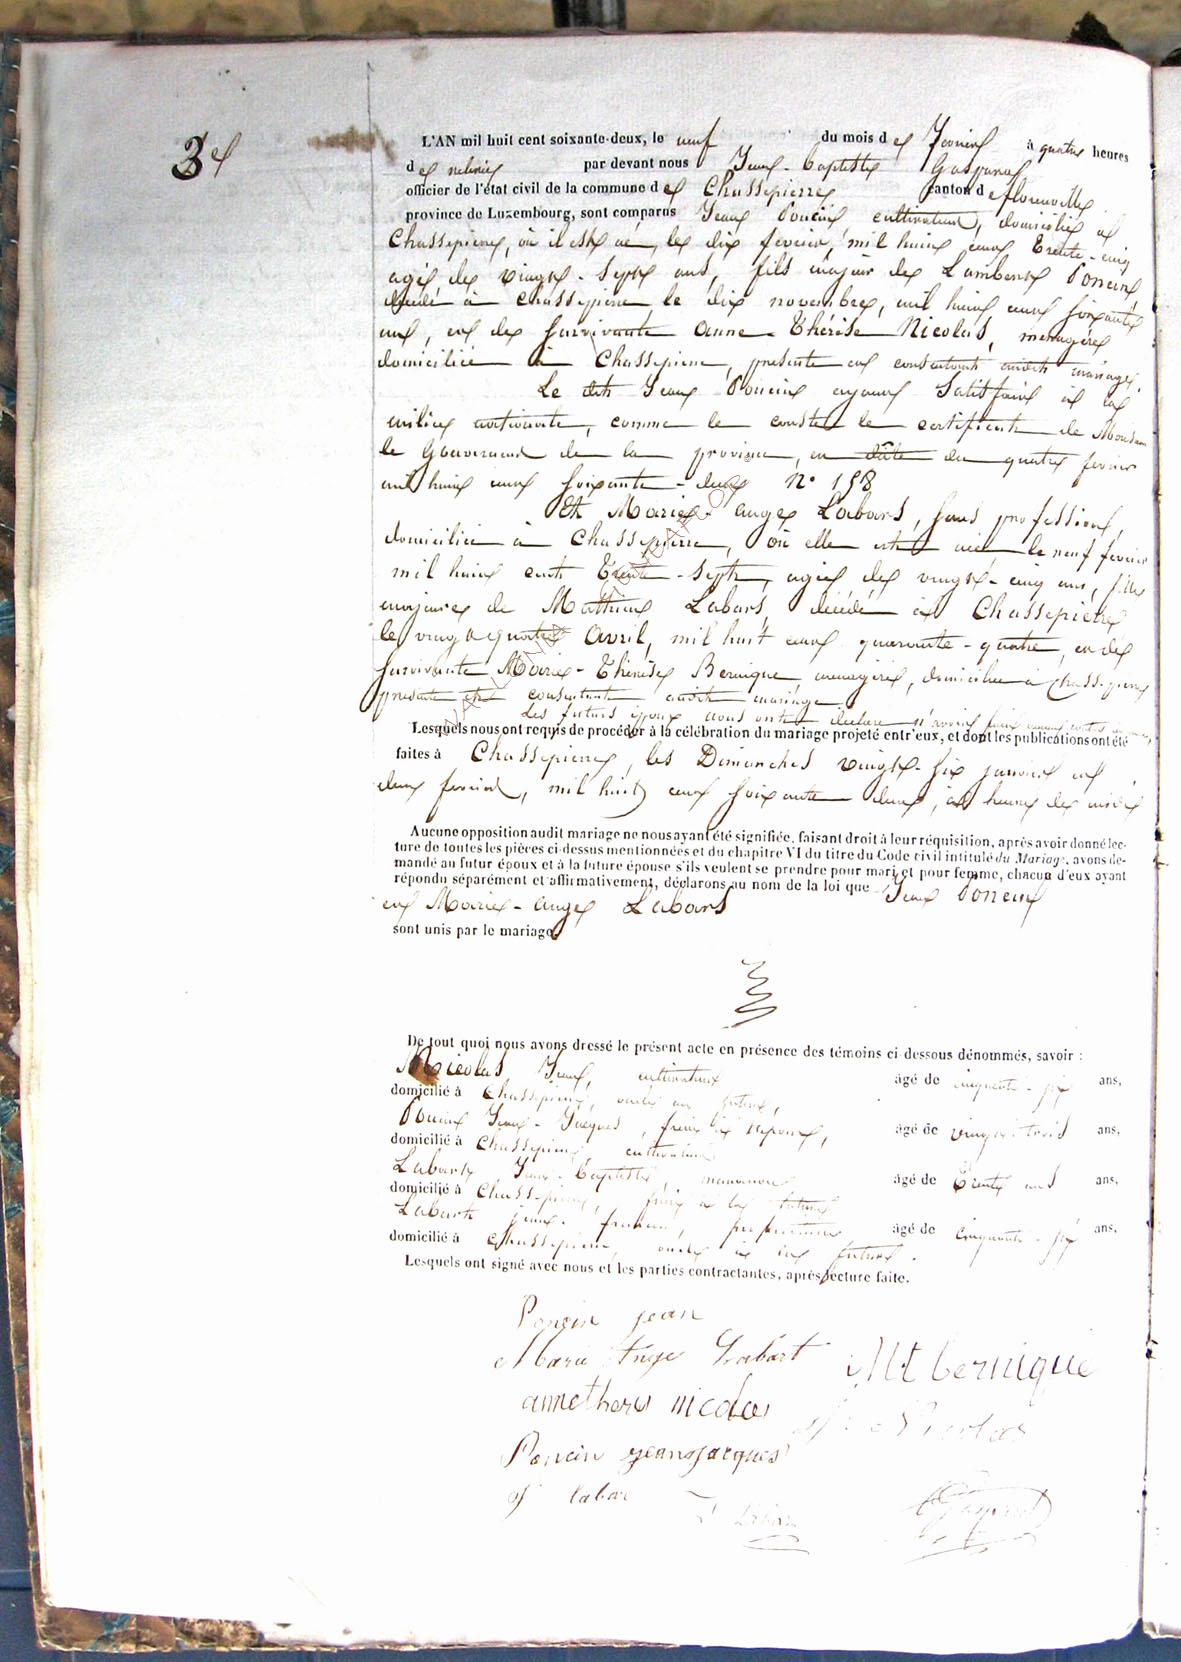 3e
L'AN mil huit cent soixante-deux, le neuf du mois de février à quatre heures
de relevée par devant nous Jean-Baptiste Gaspard
officier de l'état civil de la commune de Chassepierre canton de florenville
province de Luxembourg, sont comparus Jean Poncin cultivateur, domicilié à
Chassepierre, où il est né, le dix février, mil huit cent Trente-cinq
agé de vingt-sept ans, fils majeur de Lambert Poncin
décédé à Chassepierre le dix novembre, mil huit cent soixante
un, et de survivante Anne Thérèse Nicolas, menagère
domiciliée à Chassepierre, présente et consentante audit mariage.
Le dit Jean Poncin ayant satisfait à la
milice nationale, comme le conste le certificat de Monsieur
le Gouverneur de la province, en date du quatre fevrier
mil huit cent soixante-deux n° 158
Et Marie-ange Labart, sans profession,
domiciliée à Chassepierre, où elle est née, le neuf février
mil huit cent Trente-sept, agée de vingt-cinq ans, fille
majeure de Mathieu Labart, décédé à Chassepierre
le vingt quatre avril, mil huit cent quarante-quatre, et de
survivante Marie-Thérèse Bernique menagère, domiciliée à Chassepierre
présente et consentante audit mariage
Les futurs époux nous ont déclaré n'avoir fait aucun
Lesquels nous ont requis de procéder à la célébration du mariage projeté entr'eux, et dont les publications ont été
faites à Chassepierre, les Dimanches vingt-six janvier et
deux fevrier, mil huit cent soixante deux, à heure de midi
Aucune opposition audit mariage ne nous ayant été signifiée, faisant droit à leur réquisition, après avoir donné lec-
ture de toutes les pièces ci-dessus mentionnées et du chapitre VI du titre du Code civil intitulé du Mariage, avons de-
mandé au futur époux et à la future épouse s'ils veulent se prendre pour mari et pour femme, chacun d'eux ayant
répondu séparément et affirmativement, déclarons au nom de la loi que Jean Poncin
et Marie-ange Labart
sont unis par le mariage.
De tout quoi nous avons dressé le présent acte en présence des témoins ci-dessous dénommés, savoir :
Nicolas Jean, cultivateur âgé de cinquante-six ans,
domicilié à Chassepierre, oncle au futur,
Poncin Jean-Jacques, frère à l'époux, âgé de vingt-trois ans,
domicilié à Chassepierre, cultivateur
Labart Jean-Baptiste, manoeuvre âgé de Trente ans ans,
domicilié à Chassepierre, frère à la future
Labart Jean-François, âgé de cinquante-six ans,
domicilié à Chassepierre, oncle à la future.
Lesquels ont signé avec nous et les parties contractantes, après lecture faite.
Poncin jean
Marie Ange Labart Mt bernique
annethers nicolas J. Nicolas
Poncin jeanjacques
J labar
J Gaspard